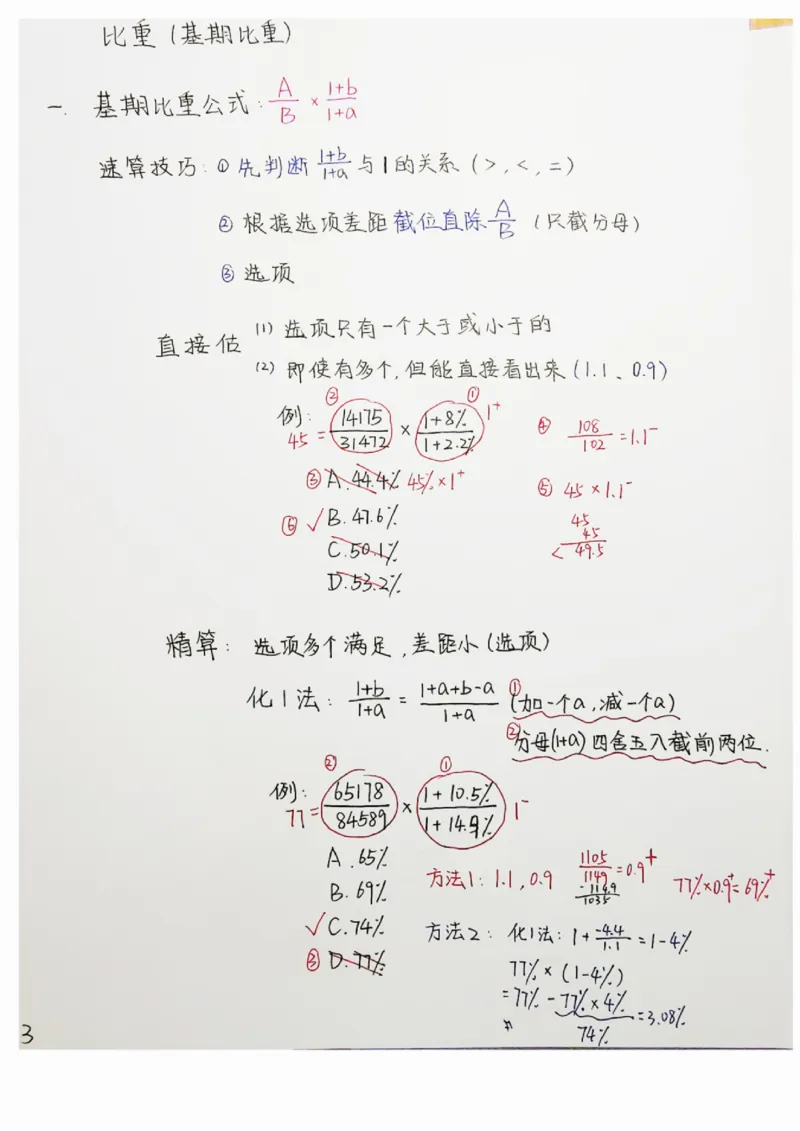 比重 (基期比重)
一. 基期比重公式: A/B × (1+b)/(1+a)
速算技巧: ① 先判断 (1+b)/(1+a) 与1的关系 (>, <, =)
② 根据选项差距截位直除 A/B (只截分母)
③ 选项
直接估
(1) 选项只有一个大于或小于的
(2) 即使有多个, 但能直接看出来 (1.1、0.9)
② ①
例: 45 = 14175/31472 × (1+8%)/(1+2.2%) 1⁺
④ 108/102 = 1.1⁻
③ A. 44.4% 45% × 1⁺
⑤ 45 × 1.1⁻
⑥ ✓ B. 47.6%
45
45
< 49.5
C. 50.1%
D. 53.2%
精算: 选项多个满足, 差距小 (选项)
化1法: (1+b)/(1+a) = (1+a+b-a)/(1+a) ① (加一个a, 减一个a)
② 分母(1+a) 四舍五入截前两位.
② ①
例: 77 = 65178/84589 × (1+10.5%)/(1+14.9%) 1⁻
A. 65%
方法1: 1.1, 0.9 1105/1149 = 0.9⁺ 77% × 0.9⁺ = 69%⁺
-114.9
1035
B. 69%
✓ C. 74%
方法2: 化1法: 1 + -4.4/1.1 = 1-4%
③ D. 77%
77% × (1-4%)
= 77% - 77% × 4% = 3.08%
74%
3